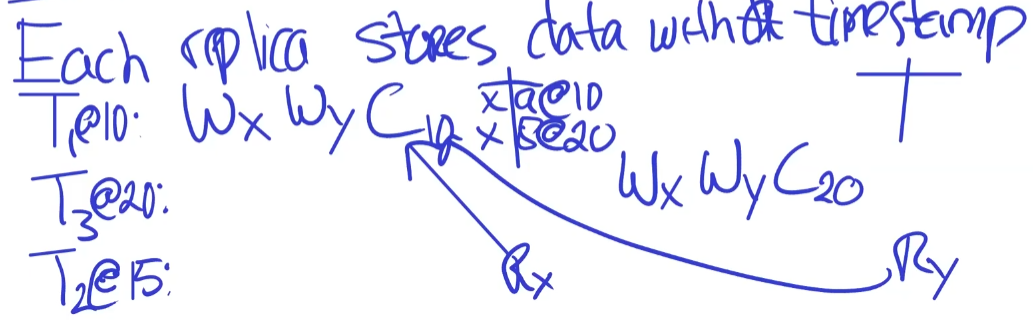 Each replica stores data with timestamp
T
T1@10: Wx Wy C10 x a@10
x b@20
T3@20: Wx Wy C20
T2@15: Rx Ry